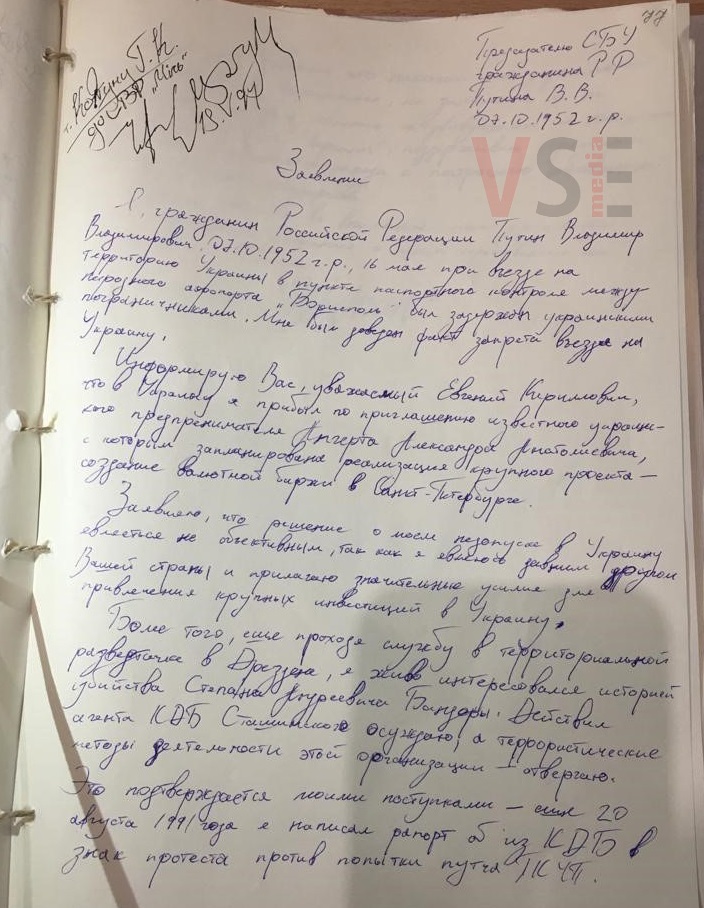 77
т. Кондину Г. К.
до ОВР „Міль"
13.V.97
Председателю СБУ
гражданина РФ
Путина В. В.
07.10.1952 г.р.
VSE
media
Заявление
Я, гражданин Российской Федерации Путин Владимир
Владимирович, 07.10.1952 г.р., 16 мая при въезде на
территорию Украины в пункте паспортного контроля между
народного аэропорта „Борисполь" был задержан украинскими
пограничниками. Мне был доведен факт запрета въезда на
Украину.
Информирую Вас, уважаемый Евгений Кириллович,
что в Украину я прибыл по приглашению известного украинс-
кого предпринимателя Ангерта Александра Анатолиевича,
с которым запланирована реализация крупного проекта –
создание валютной биржи в Санкт-Петербурге.
Заявляю, что решение о моем незапуске в Украину
евляеться не объективным, так как я евляюсь давним другом
Вашей страны и прилагаю значительные усилия для
привлечения крупных инвестиций в Украину.
Боле того, еще проходя службу в территориальной
разведточке в Дрездене, я живо интересовался историей
убийства Степана Андреевича Бандеры. Действия
агента КДБ Сташинского осуждаю, а террористические
методы деятельности этой организации – отвергаю.
Это подтверждается моими поступками – еще 20
августа 1991 года я написал рапорт об из КДБ в
знак протеста против попытки путча ГКЧП.